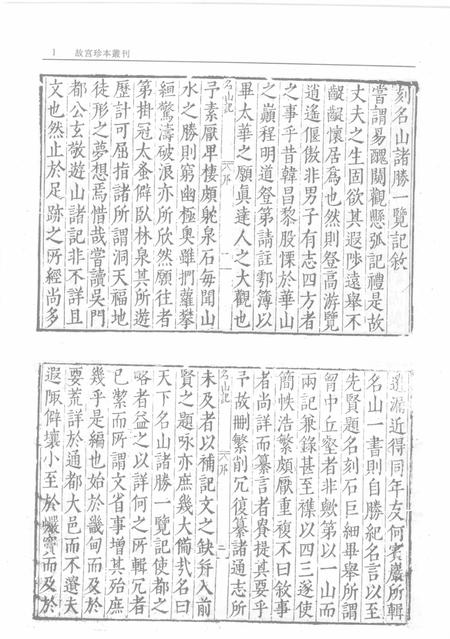 1 故宮珍本叢刊
刻名山諸勝一覽記敘
嘗謂易醜闚觀懸弧記禮是故
丈夫之生固欲其遐陟遠舉不
齪齪懷居爲也然則登高游覽
逍遙偃傲非男子有志四方者
之事乎昔韓昌黎股慄於華山
之巔程明道登第請註鄠簿以
畢太華之願眞達人之大觀也
名山記 序 一
予素厭卑棲頗躭泉石每聞山
水之勝則窮幽極奧雖捫蘿攀
絙驚濤破浪亦所欣然願往者
第掛冠太蚤僻臥林泉其所遊
歷計可屈指諸所謂洞天福地
徒形之夢想焉惜哉嘗讀吳門
都公玄敬遊山諸記非不詳且
文也然止於足跡之所經尚多
遺漏近得同年友何賓巖所輯
名山一書則自勝紀名言以至
先賢題名刻石巨細畢舉所謂
胷中丘壑者非歟第以一山而
兩記兼錄甚至襍以四三遂使
簡帙浩繁頗厭重複不曰敘事
者尚詳而纂言者貴提其要乎
予故刪繁削冗復纂諸通志所
名山記 序 二
未及者以補記文之缺并入前
賢之題咏亦庶幾大備弌名曰
天下名山諸勝一覽記使都之
略者益之以詳何之所輯冗者
已絜而所謂文省事增其殆庶
幾乎是編也始於畿甸而及於
要荒詳於通都大邑而不遺夫
遐陬僻壤小至於巖竇而及於